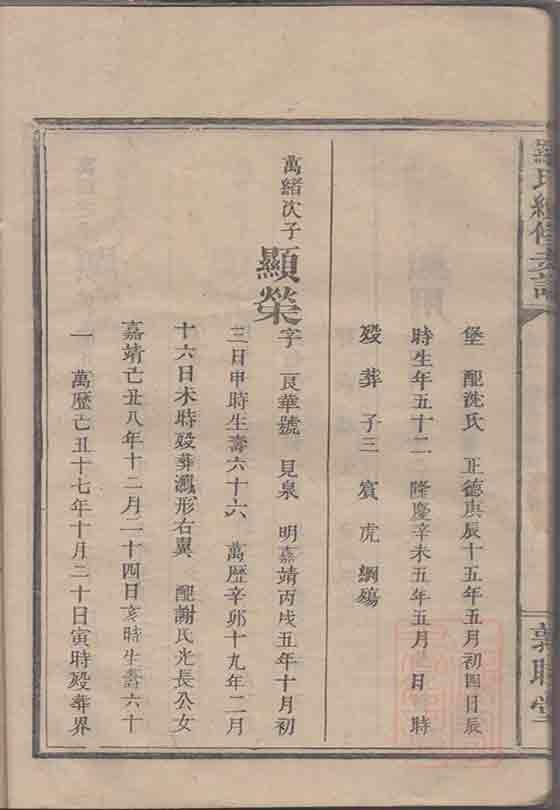 氏續修支譜
堂
堡　配沈氏　正德庚辰十五年五月初四日辰
時生年五十二　隆慶辛未五年五月　日　時
歿　葬　子三　賓　虎　綱殤
萬緒次子
顯榮
字　良華號　見泉　明嘉靖丙戌五年十月初
三日申時生壽六十六　萬歷辛卯十九年二月
十六日未時歿葬鳳形右翼　配謝氏光長公女
嘉靖亡丑八年十二月二十四日亥時生壽六十
一　萬歷亡丑十七年十月二十日寅時歿葬界